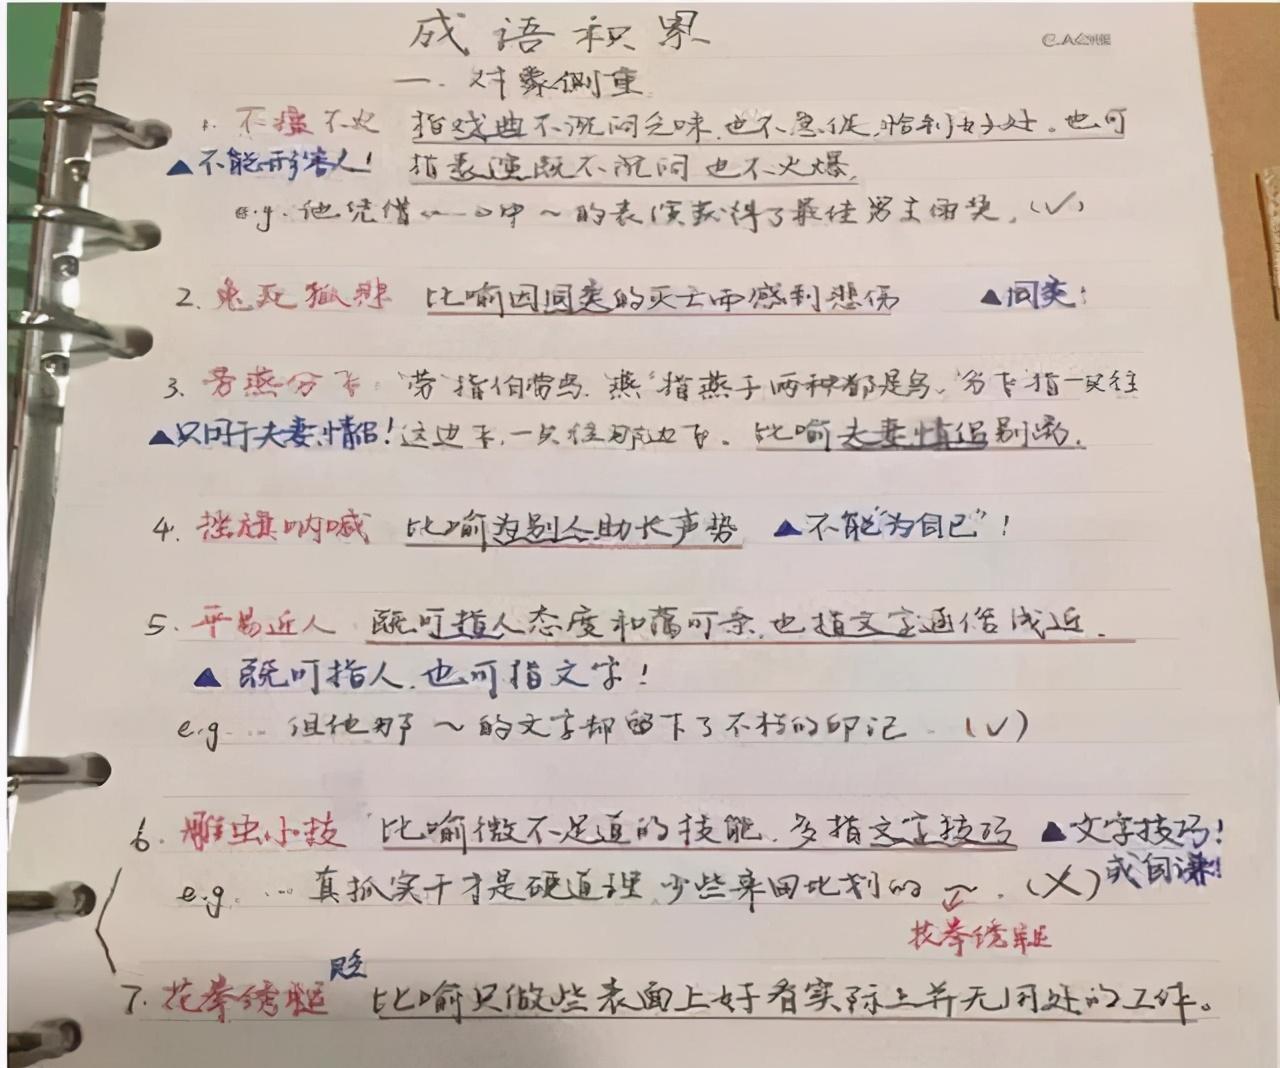 成语积累
一. 对象侧重
1. 不瘟不火 指戏曲不沉闷乏味,也不急促,恰到好处。也可
▲不能形容人! 指表演既不沉闷也不火爆.
e.g. 他凭借《……》中~的表演获得了最佳男主角奖.(√)
2. 兔死狐悲 比喻因同类的灭亡而感到悲伤 ▲同类!
3. 劳燕分飞: "劳"指伯劳鸟."燕"指燕子两种都是鸟."分飞"指一只往
▲只用于夫妻,情侣!这边飞,一只往那边飞。比喻夫妻情侣别离.
4. 摇旗呐喊 比喻为别人助长声势 ▲不能"为自己"!
5. 平易近人 既可指人态度和蔼可亲,也指文字通俗浅近.
▲既可指人,也可指文字!
e.g. …但他那~的文字却留下了不朽的印记.(√)
6. 雕虫小技 比喻微不足道的技能,多指文字技巧 ▲文字技巧!
或自谦!
e.g. …真抓实干才是硬道理,少些来回比划的~.(×)
花拳绣腿
7. 花拳绣腿 贬 比喻只做些表面上好看实际上并无用处的工作。